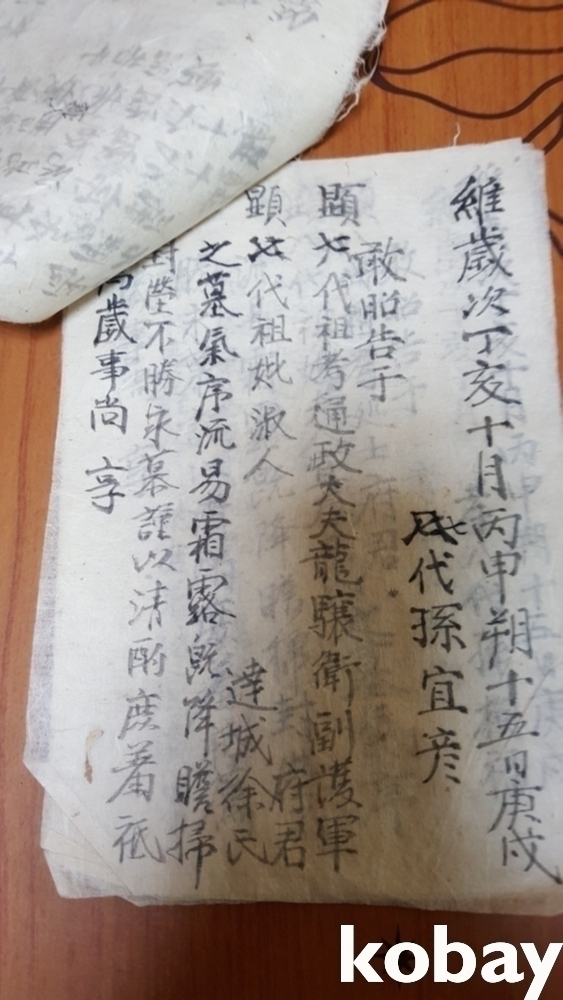 維歲次丁亥十月丙申朔十五日庚戌
七代孫宜彦
敢昭告于
顯七代祖考通政大夫龍驤衛副護軍府君
顯七代祖妣淑人達城徐氏
之墓氣序流易霜露旣降瞻掃
封塋不勝永慕謹以清酌庶羞祗
薦歲事尚享
kobay